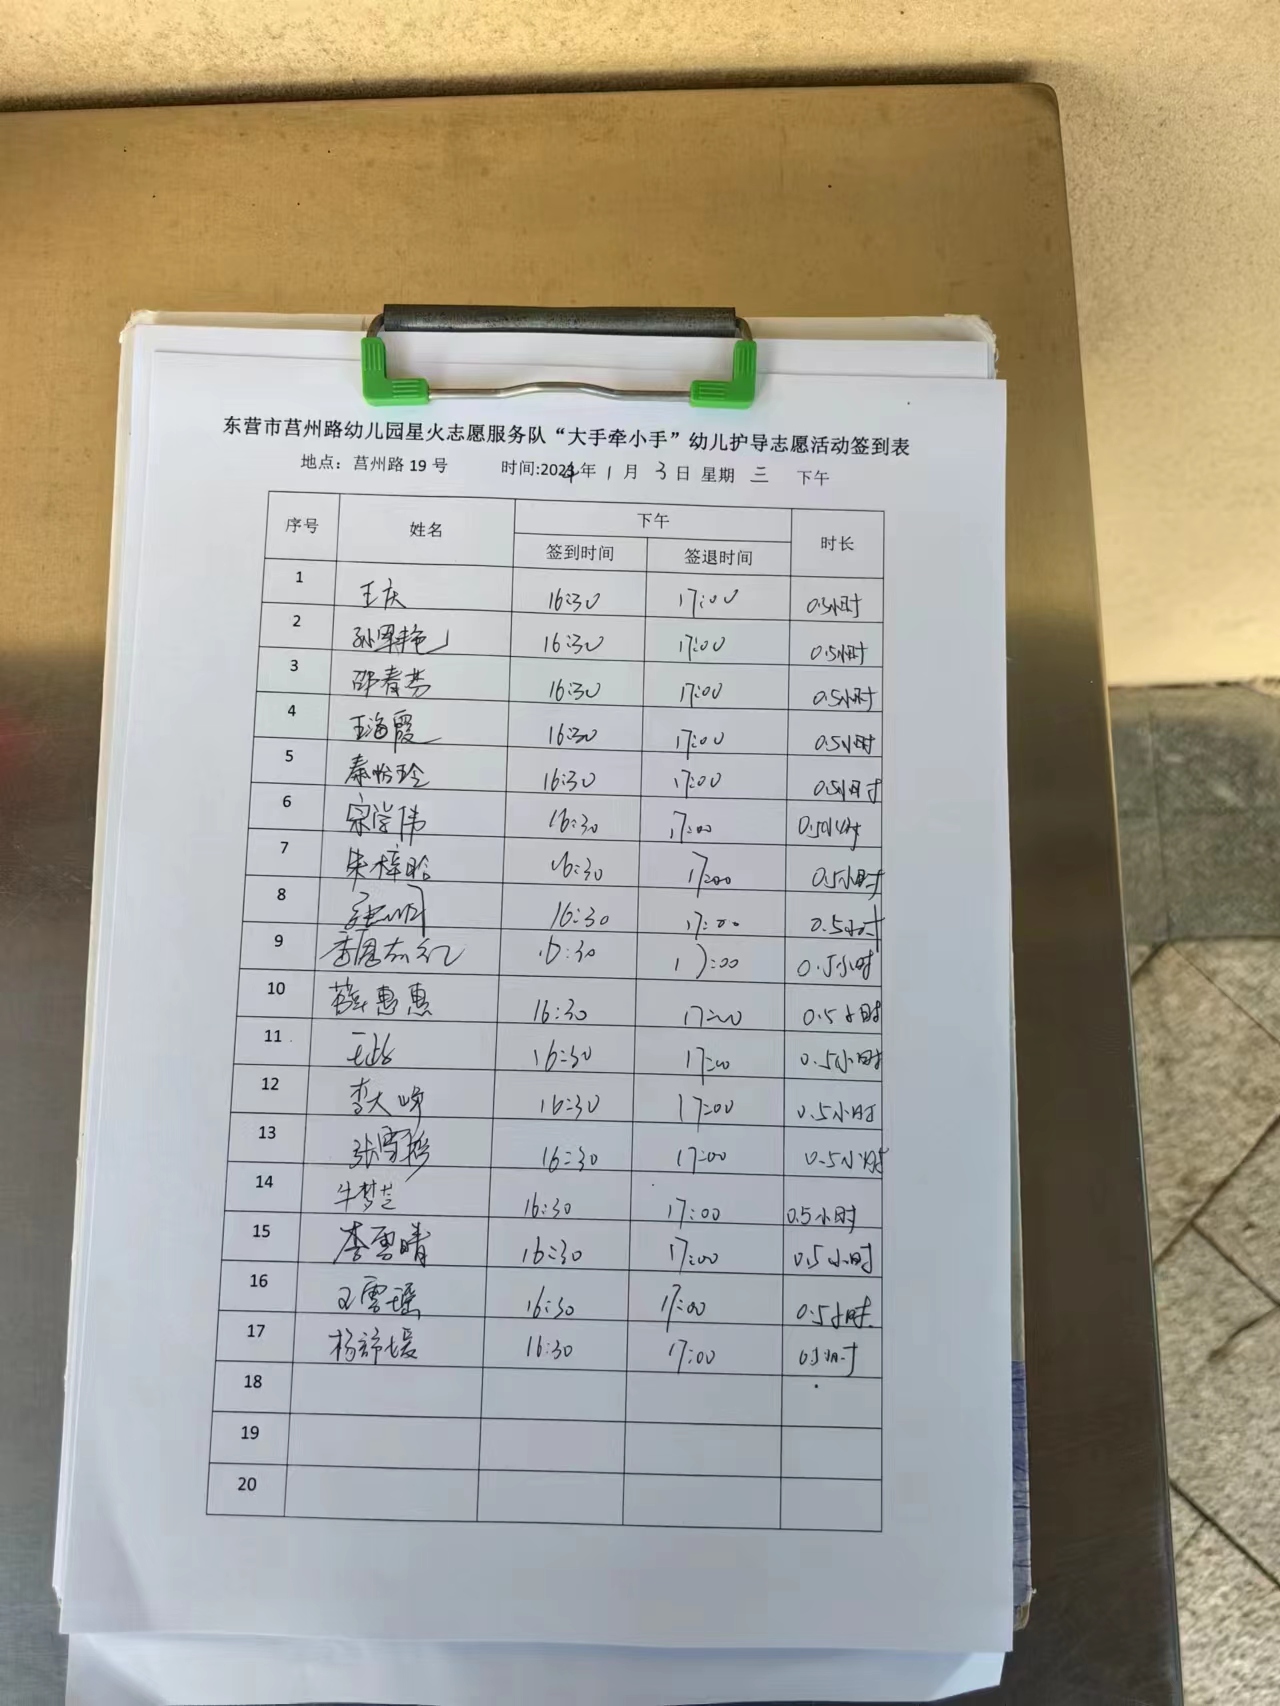 东营市莒州路幼儿园星火志愿服务队“大手牵小手”幼儿护导志愿活动签到表
地点：莒州路 19 号 时间:2024年 1 月 3 日 星期 三 下午
序号 姓名 下午 时长
签到时间 签退时间
1 王庆 16:30 17:00 0.5小时
2 孙翠艳 16:30 17:00 0.5小时
3 邵春芬 16:30 17:00 0.5小时
4 王海霞 16:30 17:00 0.5小时
5 秦怡玲 16:30 17:00 0.5小时
6 宋学伟 16:30 17:00 0.5小时
7 朱梓晗 16:30 17:00 0.5小时
8 16:30 17:00 0.5小时
9 16:30 17:00 0.5小时
10 薛惠惠 16:30 17:00 0.5小时
11 16:30 17:00 0.5小时
12 李大峰 16:30 17:00 0.5小时
13 张雪 16:30 17:00 0.5小时
14 牛梦芝 16:30 17:00 0.5小时
15 李雪晴 16:30 17:00 0.5小时
16 王雪瑶 16:30 17:00 0.5小时
17 杨舒媛 16:30 17:00 0.5小时
18
19
20